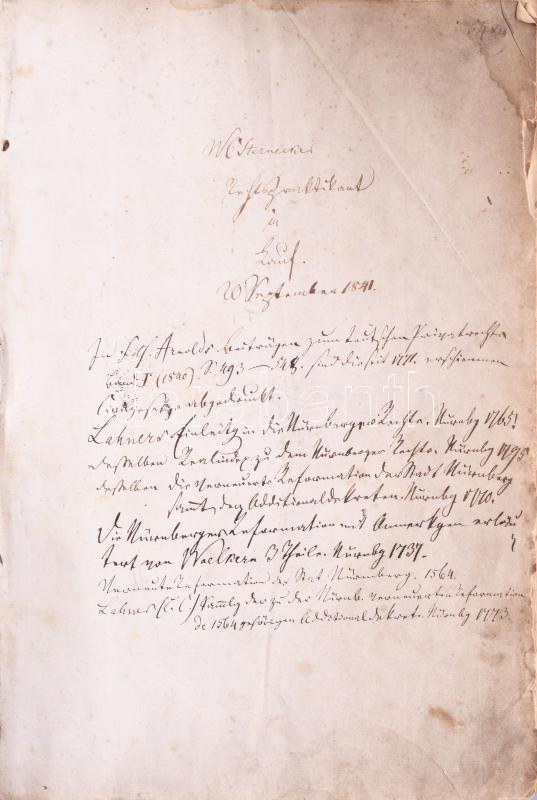 W C Sternecker
Rechtspraktikant
in
Lauf.
20 September 1841.
In Arnolds Beiträgen zum teutschen Privatrechte
Band I (1840) S. 493 — sind die seit 1771. erschienenen
Civilgesetze abgedruckt.
Lahners Einleitg in die Nürnberger Rechte. Nürnbg 1765!
desselben Realindex zu dem Nürnberger Rechte. Nürnbg 1795
desselben die verneuerte Reformation der Stadt Nürnberg
sammt den Additionaldekreten. Nürnbg 1770.
Die Nürnberger Reformation mit Anmerkgen erläu
tert von Woelkern 3 Theile. Nürnbg 1737.
Verneute Reformation der Stat Nürmberg. 1564.
Lahner (C. C.) Sammlg der zu der Nürnb. verneuerten Reformation
de 1564 gehörigen Additionaldekrete. Nürnbg 1773.